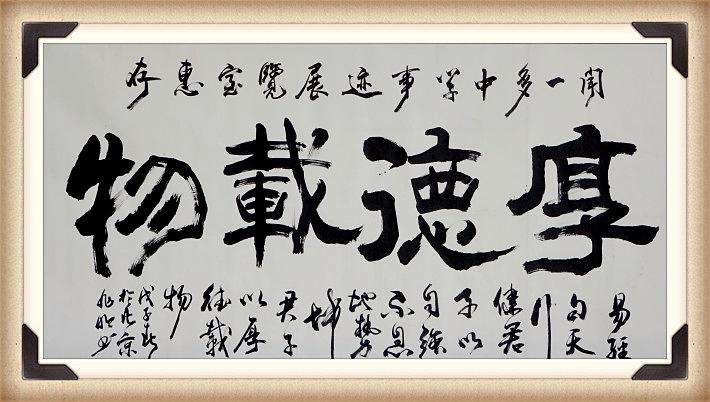 闻一多中学事迹展覽室惠存
厚德載物
易經
曰天
行
健君
子以
自强
不息
地势
坤
君子
以厚
德載
物
戊子春
於北京